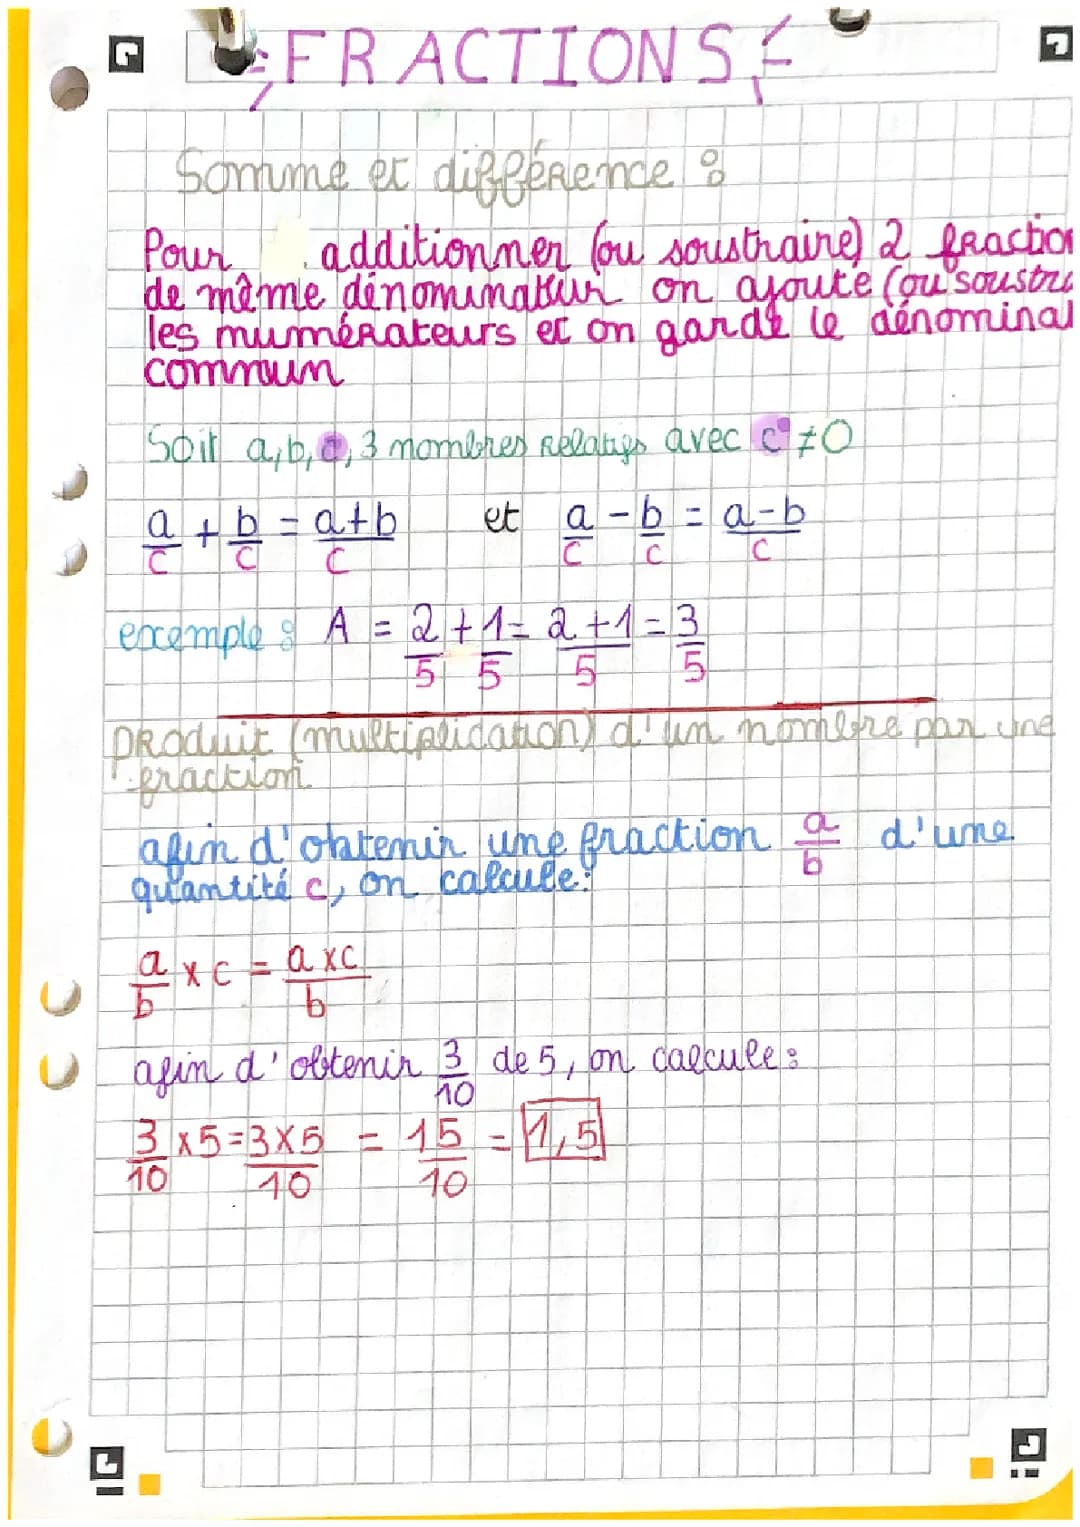 FRACTIONS
Somme et différence :
Pour additionner (ou soustraire) 2 fraction
de même dénominateur on ajoute (ou soustra
les numérateurs et on garde le dénominat
commun
Soit a, b, c, 3 nombres relatifs avec c ≠ 0
a/c + b/c = a+b/c et a/c - b/c = a-b/c
exemple : A = 2/5 + 1/5 = 2+1/5 = 3/5
produit (multiplication) d'un nombre par une
fraction
afin d'obtenir une fraction a/b d'une
quantité c, on calcule:
a/b x c = a x c/b
afin d'obtenir 3/10 de 5, on calcule :
3/10 x 5 = 3 x 5/10 = 15/10 = 1,5